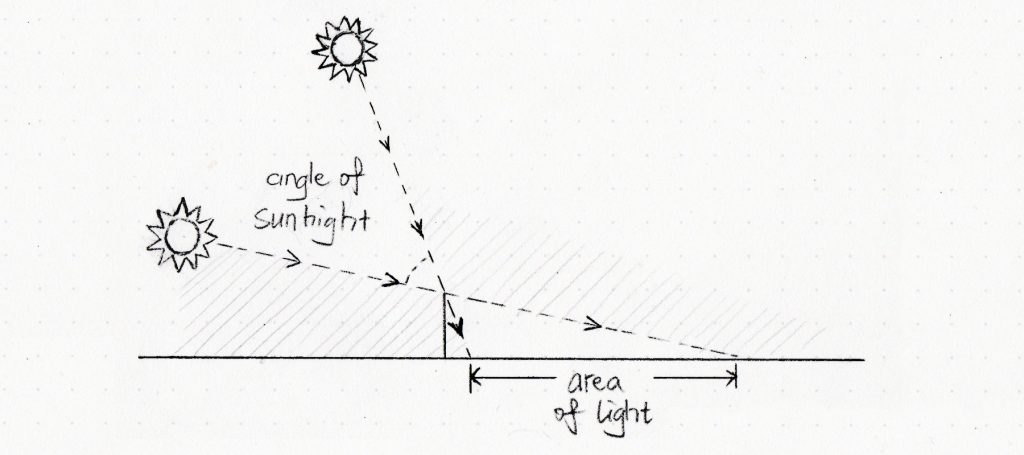 angle of
sunhight
area
of light